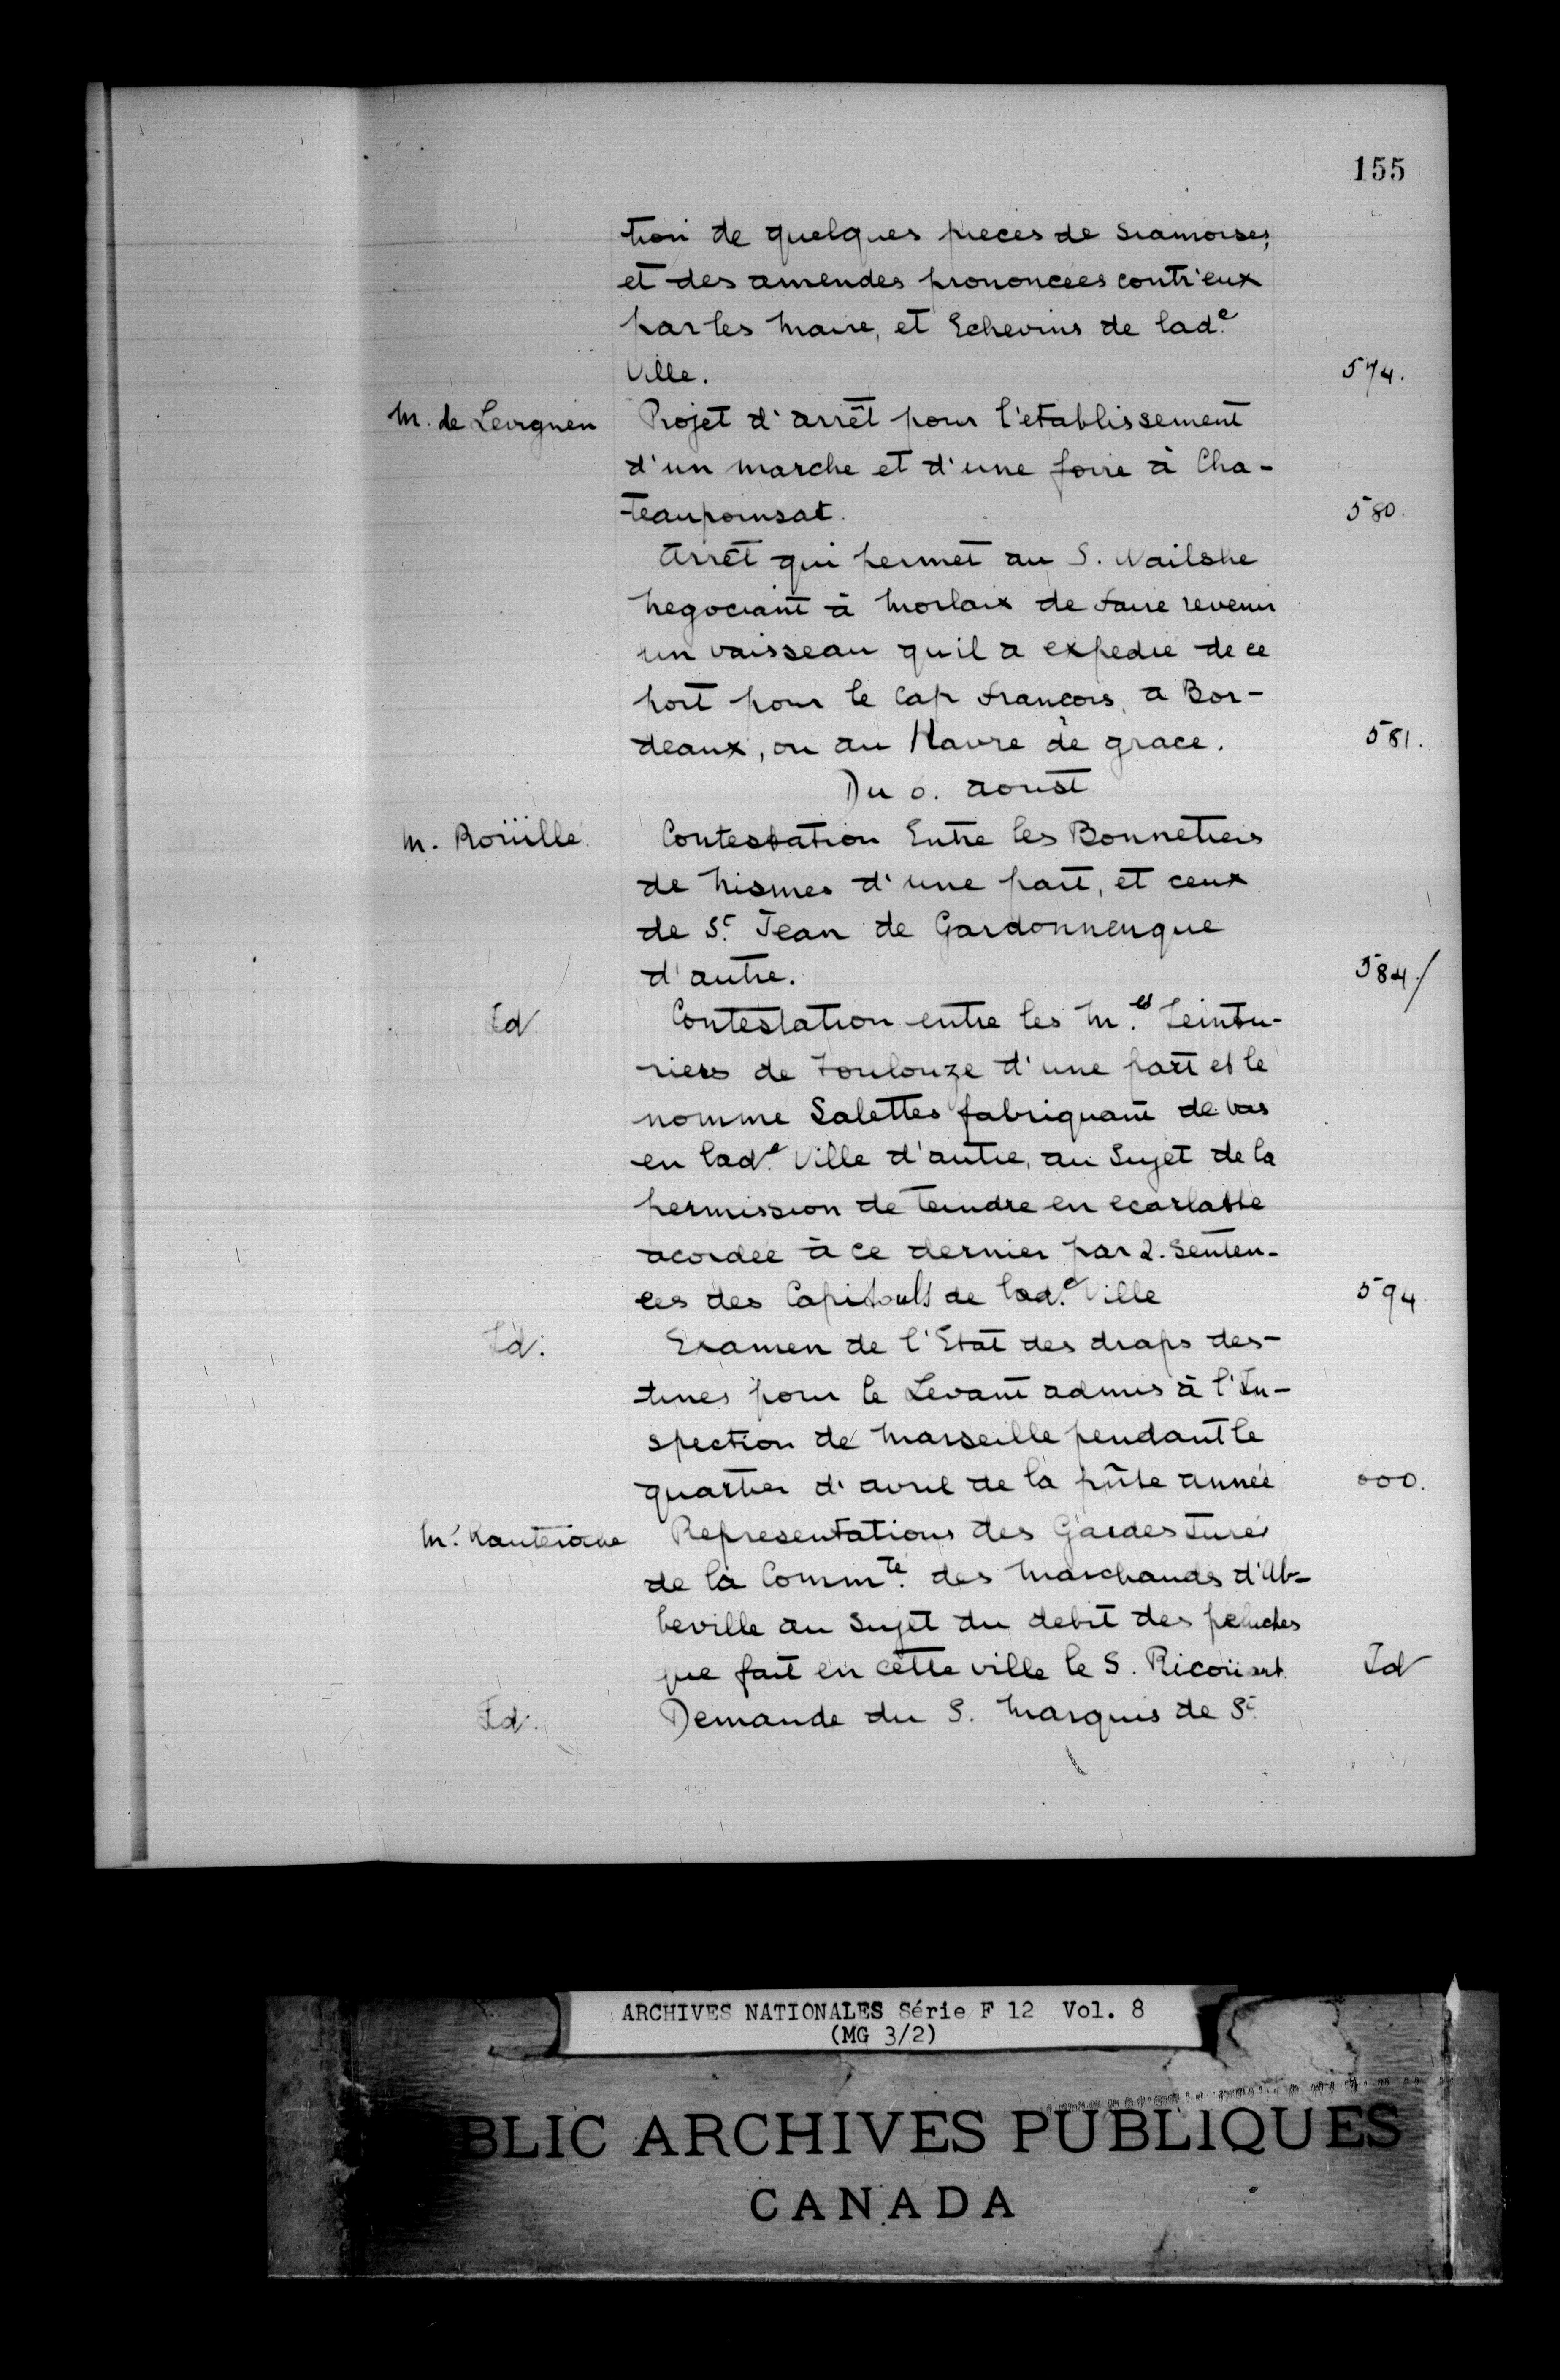 155
tion de quelques pieces de siamoises,
et des amendes prononcées contr'eux
par les Maire, et Echevins de lad.e
Ville. 574.
M. de Levignen Projet d'arrêt pour l'etablissement
d'un marché et d'une foire à Cha-
teauponsat. 580.
Arrêt qui permet au S. Wailshe
Negociant à Morlaix de faire revenir
un vaisseau qu'il a expedié de ce
port pour le Cap françois, a Bor-
deaux, ou au Havre de grace. 581.
Du 6. aoust
M. Roüillé. Contestation Entre les Bonnetiers
de Nismes d'une part, et ceux
de St. Jean de Gardonnenque
d'autre. 584./
Id Contestation entre les M.es Teintu-
riers de Toulouze d'une part et le
nommé Salettes fabriquant de bas
en lad.e Ville d'autre, au Sujet de la
permission de teindre en ecarlatte
acordée à ce dernier par 2. Senten-
ces des Capitouls de lad.e Ville 594
Id. Examen de l'Etat des draps des-
tinés pour le Levant admis à l'In-
spection de Marseille pendant le
quartier d'avril de la pñte année 600.
M. hauteroche Representations des Gardes Jurés
de la Comm.té des Marchands d'Ab-
beville au Sujet du debit des peluches
que fait en cette ville le S. Ricoüart Id
Id. Demande du S. Marquis de St.
ARCHIVES NATIONALES Série F 12 Vol. 8
(MG 3/2)
BLIC ARCHIVES PUBLIQUES
CANADA